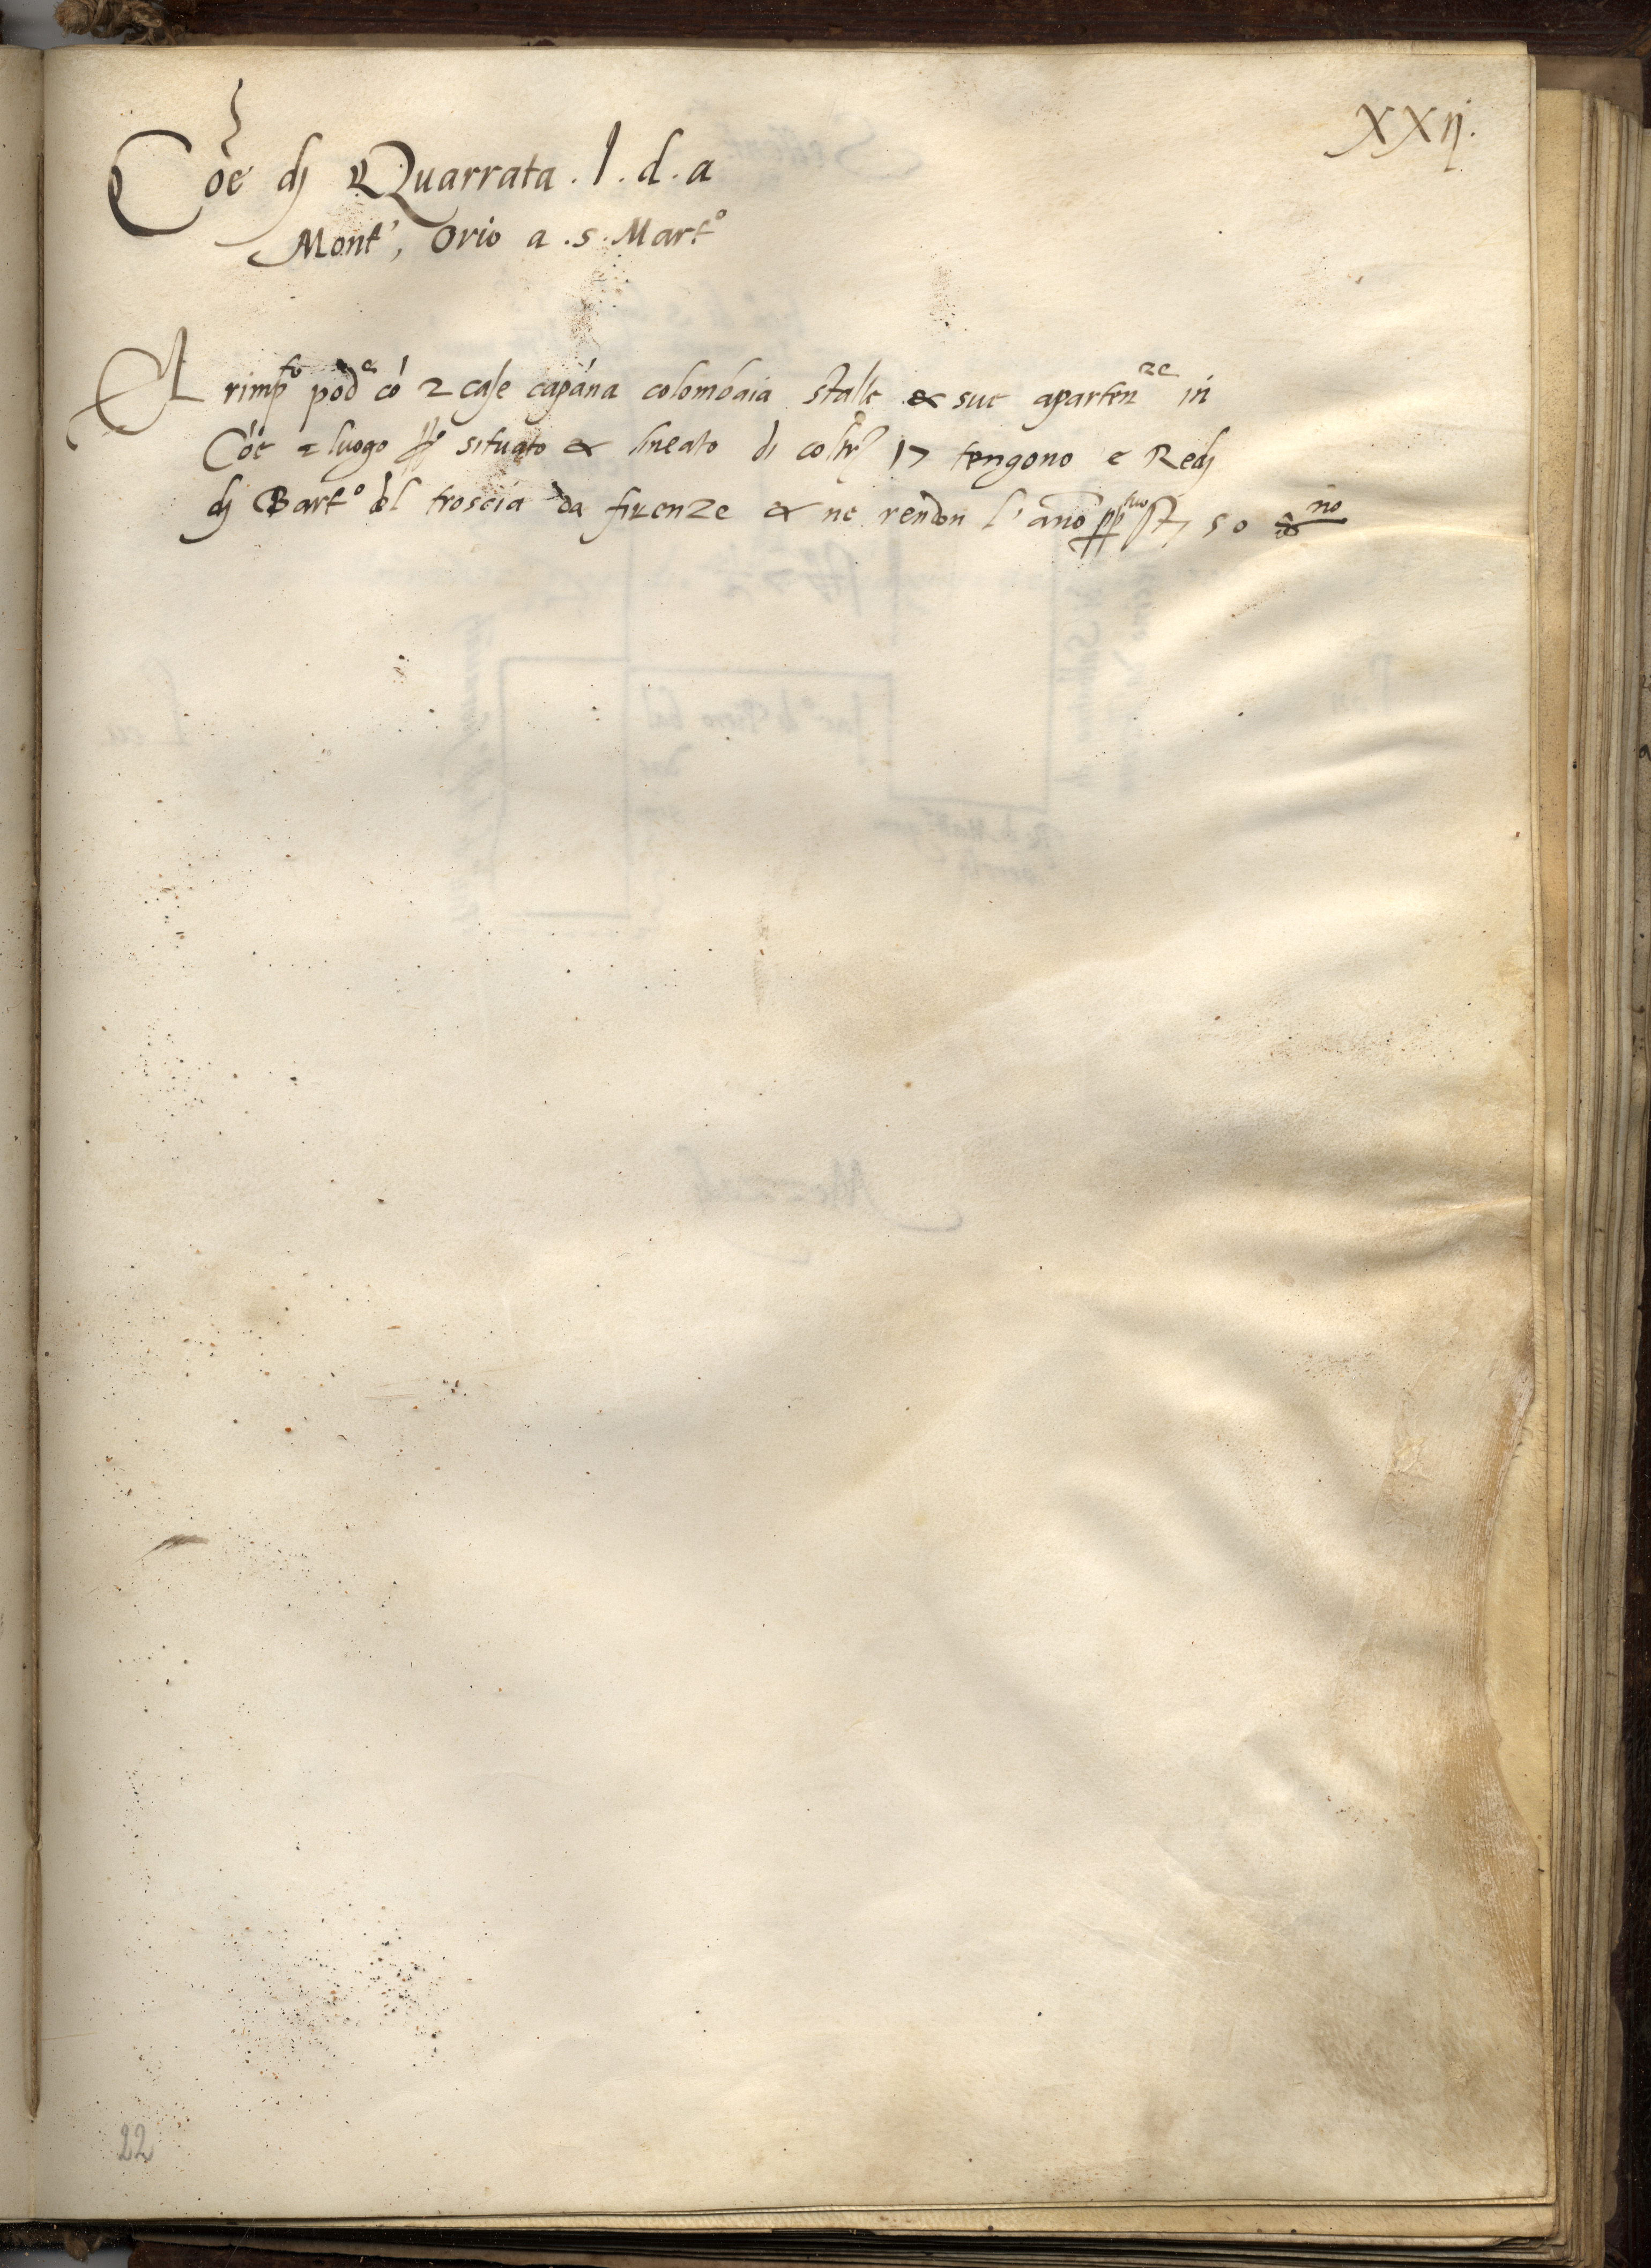 XXij.
Cōe dj Quarrata . l . d . a
Mont', Orio a . s . Mart°
El rimpᵗᵒ podᵉ cō 2 case capāna colombaia stalle & sue apartenᶻᵉ in
Cōe 2 luogo situato & lineato di coltrᵉ 17 tengono e Redj
dj Bart° del troscia da firenze & ne rendon l' anō ppᵗᵘᵒ 50
22